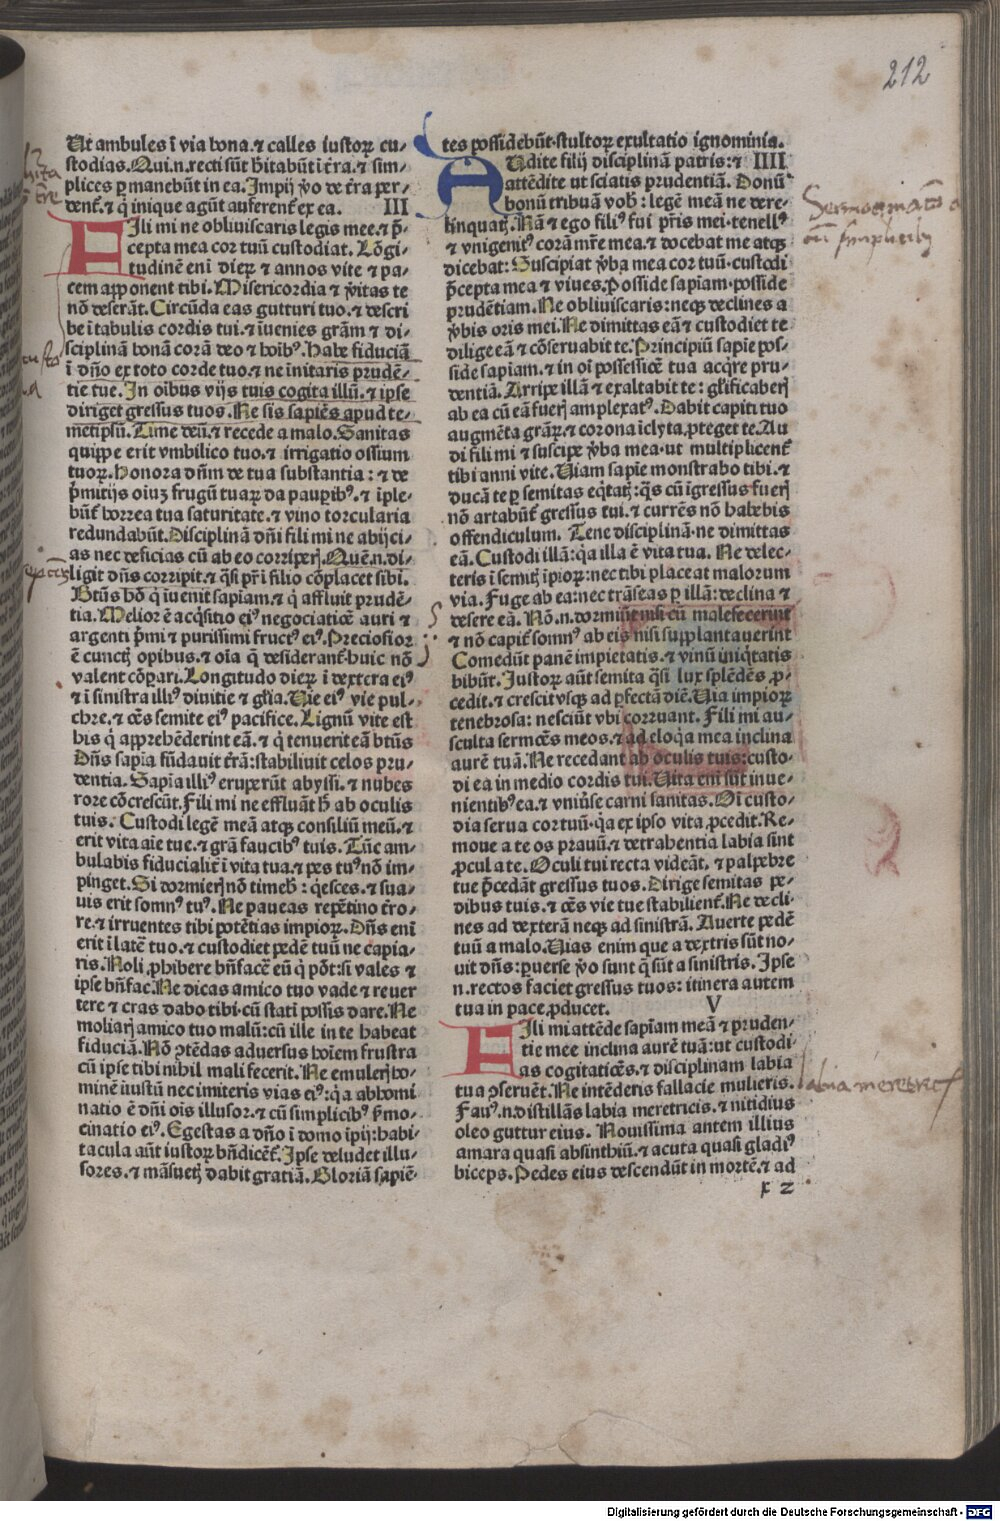 212
Ut ambules ī via bona.⁊ calles iustoꝝ cu-
stodias.Qui.n.recti sūt hītabūt ī t̄ra.⁊ sim-
plices ꝑmanebūt in ea.Impij v̄o de t̄ra per-
dent̄.⁊ q̇ inique agūt auferent̄ ex ea. III
FIli mi ne obliuiscaris legis mee.⁊ p̄-
cepta mea cor tuū custodiat. Lōgi-
tudinē eni̅ dieꝝ ⁊ annos vite ⁊ pa-
cem apponent tibi.Misericordia ⁊ v̄itas te
nō deserāt.Circūda eas gutturi tuo.⁊ descri
be ī tabulis cordis tui.⁊ īuenies grām ⁊ di-
sciplinā bonā corā deo ⁊ hoībꝰ.Habe fiduciā
ī dño ex toto corde tuo.⁊ ne initaris prudē-
tie tue.In oībus vijs tuis cogita illū.⁊ ipse
diriget gressus tuos.Ne sis sapiēs apud te-
metipsū.Time deū.⁊ recede a malo.Sanitas
quippe erit vmbilico tuo.⁊ irrigatio ossium
tuoꝝ.Honora dñm de tua substantia: ⁊ de
p̄mitijs oīuꝫ frugū tuaꝝ da paupībꝰ.⁊ īple-
būt̄ horrea tua saturitate.⁊ vino torcularia
redundabūt.Disciplinā dñi fili mi ne abijci-
as nec deficias cū ab eo corriperꝭ.Quē.n.di-
ligit dñs corripit.⁊ q̄si pr̄ ī filio cōplacet sibi.
Btūs hō q̇ īuenit sapīam.⁊ q̇ affluit prudē-
tia.Melior ē acq̇sitio eiꝰ negociatiōe auri ⁊
argenti p̄mi ⁊ purissimi fructꝰ eiꝰ.Preciosior
ē cunctꝭ opibus.⁊ oīa q̄ desiderant̄.huic nō
valent cōpari.Longitudo dieꝝ ī dextera eiꝰ
⁊ ī sinistra illiꝰ diuitie ⁊ gl̄ia.Uie eiꝰ vie pul-
chre.⁊ oēs semite eiꝰ pacifice.Lignū vite est
his q̇ apprehēderint eā.⁊ q̇ tenuerit eā btūs
Dñs sapīa fūdauit t̄rā:stabiliuit celos pru-
dentia.Sapīa illiꝰ eruperūt abyssi.⁊ nubes
rore cōcrescūt.Fili mi ne effluāt h̄ ab oculis
tuis. Custodi legē meā atqꝫ consiliū meū.⁊
erit vita aīe tue.⁊ grā faucibꝰ tuis.Tūc am-
bulabis fiducialit̄ ī vita tua.⁊ pes tuꝰ nō im-
pinget.Si dormierꝭ nō timebꝭ: q̇esces.⁊ sua-
uis erit somnꝰ tuꝰ.Ne paueas repētino t̄ro-
re.⁊ irruentes tibi potētias impioꝝ.Dñs enī
erit ī latē tuo.⁊ custodiet pedē tuū ne capia-
ris.Noli ꝓhibere bñfacē eū q̇ pōt:si vales ⁊
ipse bñfac.Ne dicas amico tuo vade ⁊ reuer
tere ⁊ cras dabo tibi.cū statī possis dare.Ne
moliarꝭ amico tuo malū:cū ille in te habeat
fiduciā.Nō ꝯtēdas aduersus hoīem frustra
cū ipse tibi nihil mali fecerit.Ne emulerꝭ ho-
minē iustū nec imiteris vias eiꝰ:q̇a abhomi
natio ē dñi oīs illusor.⁊ cū simplicibꝰ s̄mo-
cinatio eiꝰ.Egestas a dño ī domo ipij:habi-
tacula aūt iustoꝝ bñdicēt̄.Ipse deludet illu-
sores.⁊ māsuetꝭ dabit gratiā.Gloriā sapiē-
tes possidebūt.stultoꝝ exultatio ignominia.
AUdite filij disciplinā patris:⁊ IIII
attēdite ut sciatis prudentiā.Donū
bonū tribuā vobꝭ:legē meā ne dere-
linquatꝭ.Nā ⁊ ego filiꝰ fui pr̄is mei.tenellꝰ
⁊ vnigenitꝰ corā mr̄e mea.⁊ docebat me atqꝫ
dicebat:Suscipiat v̄ba mea cor tuū.custodi
p̄cepta mea ⁊ viues.Posside sapīam.posside
prudētiam.Ne obliuiscaris:neqꝫ declines a
v̄bis oris mei.Ne dimittas eā ⁊ custodiet te
dilige eā ⁊ cōseruabit te.Principiū sapīe pos-
side sapīam.⁊ in oī possessiōe tua acq̄re pru-
dentiā.Arripe illā ⁊ exaltabit te: gl̄ificaberꝭ
ab ea cū eā fuerꝭ amplexatꝰ.Dabit capiti tuo
augmēta grāꝝ.⁊ corona īclyta ꝓteget te.Au
di fili mi ⁊ suscipe v̄ba mea.ut multiplicent̄
tibi anni vite.Uiam sapīe monstrabo tibi.⁊
ducā te ꝑ semitas eq̇tatꝭ:q̄s cū īgressus fuerꝭ
nō artabūt̄ gressus tui.⁊ currēs nō habebis
offendiculum. Tene disciplinā.ne dimittas
eā.Custodi illā:q̇a illa ē vita tua. Ne delec-
teris ī semitꝭ īpioꝝ:nec tibi placeat malorum
via.Fuge ab ea:nec trāseas ꝑ illā:declina ⁊
desere eā.Nō.n.dormiūt nisi cū malefecerint
⁊ nō capit̄ somnꝰ ab eis nisi supplantauerint
Comedūt panē impietatis.⁊ vinū iniq̇tatis
bibūt.Iustoꝝ aūt semita q̄si lux splēdēs ꝓ-
cedit.⁊ crescit vsqꝫ ad ꝑfectā diē.Uia impioꝝ
tenebrosa:nesciūt vbi corruant.Fili mi au-
sculta sermōes meos.⁊ ad eloq̇a mea inclina
aurē tuā.Ne recedant ab oculis tuis:custo-
di ea in medio cordis tui.Uita enī sūt inue-
nientibꝰ ea.⁊ vniūse carni sanitas.Oī custo-
dia serua cor tuū.q̇a ex ipso vita ꝓcedit.Re-
moue a te os prauū.⁊ detrahentia labia sint
ꝓcul a te.Oculi tui recta videāt.⁊ palpebre
tue p̄cedāt gressus tuos.Dirige semitas pe-
dibus tuis.⁊ oēs vie tue stabilient̄.Ne decli-
nes ad dexterā neqꝫ ad sinistrā.Auerte pedē
tuū a malo.Uias enim que a dextris sūt no-
uit dñs:ꝑuerse v̄o sunt q̄ sūt a sinistris.Ipse
.n.rectos faciet gressus tuos: itinera autem
tua in pace ꝓducet. V
FIli mi attēde sapīam meā ⁊ pruden-
tie mee inclina aurē tuā:ut custodi
as cogitatiōes.⁊ disciplinam labia
tua ꝯseruēt.Ne intēderis fallacie mulieris.
Fauꝰ.n.distillās labia meretricis.⁊ nitidius
oleo guttur eius. Nouissima autem illius
amara quasi absinthiū.⁊ acuta quasi gladiꝰ
biceps.Pedes eius descendūt in mortē.⁊ ad
x 2
labia meretricꝭ
Digitalisierung gefördert durch die Deutsche Forschungsgemeinschaft - DFG